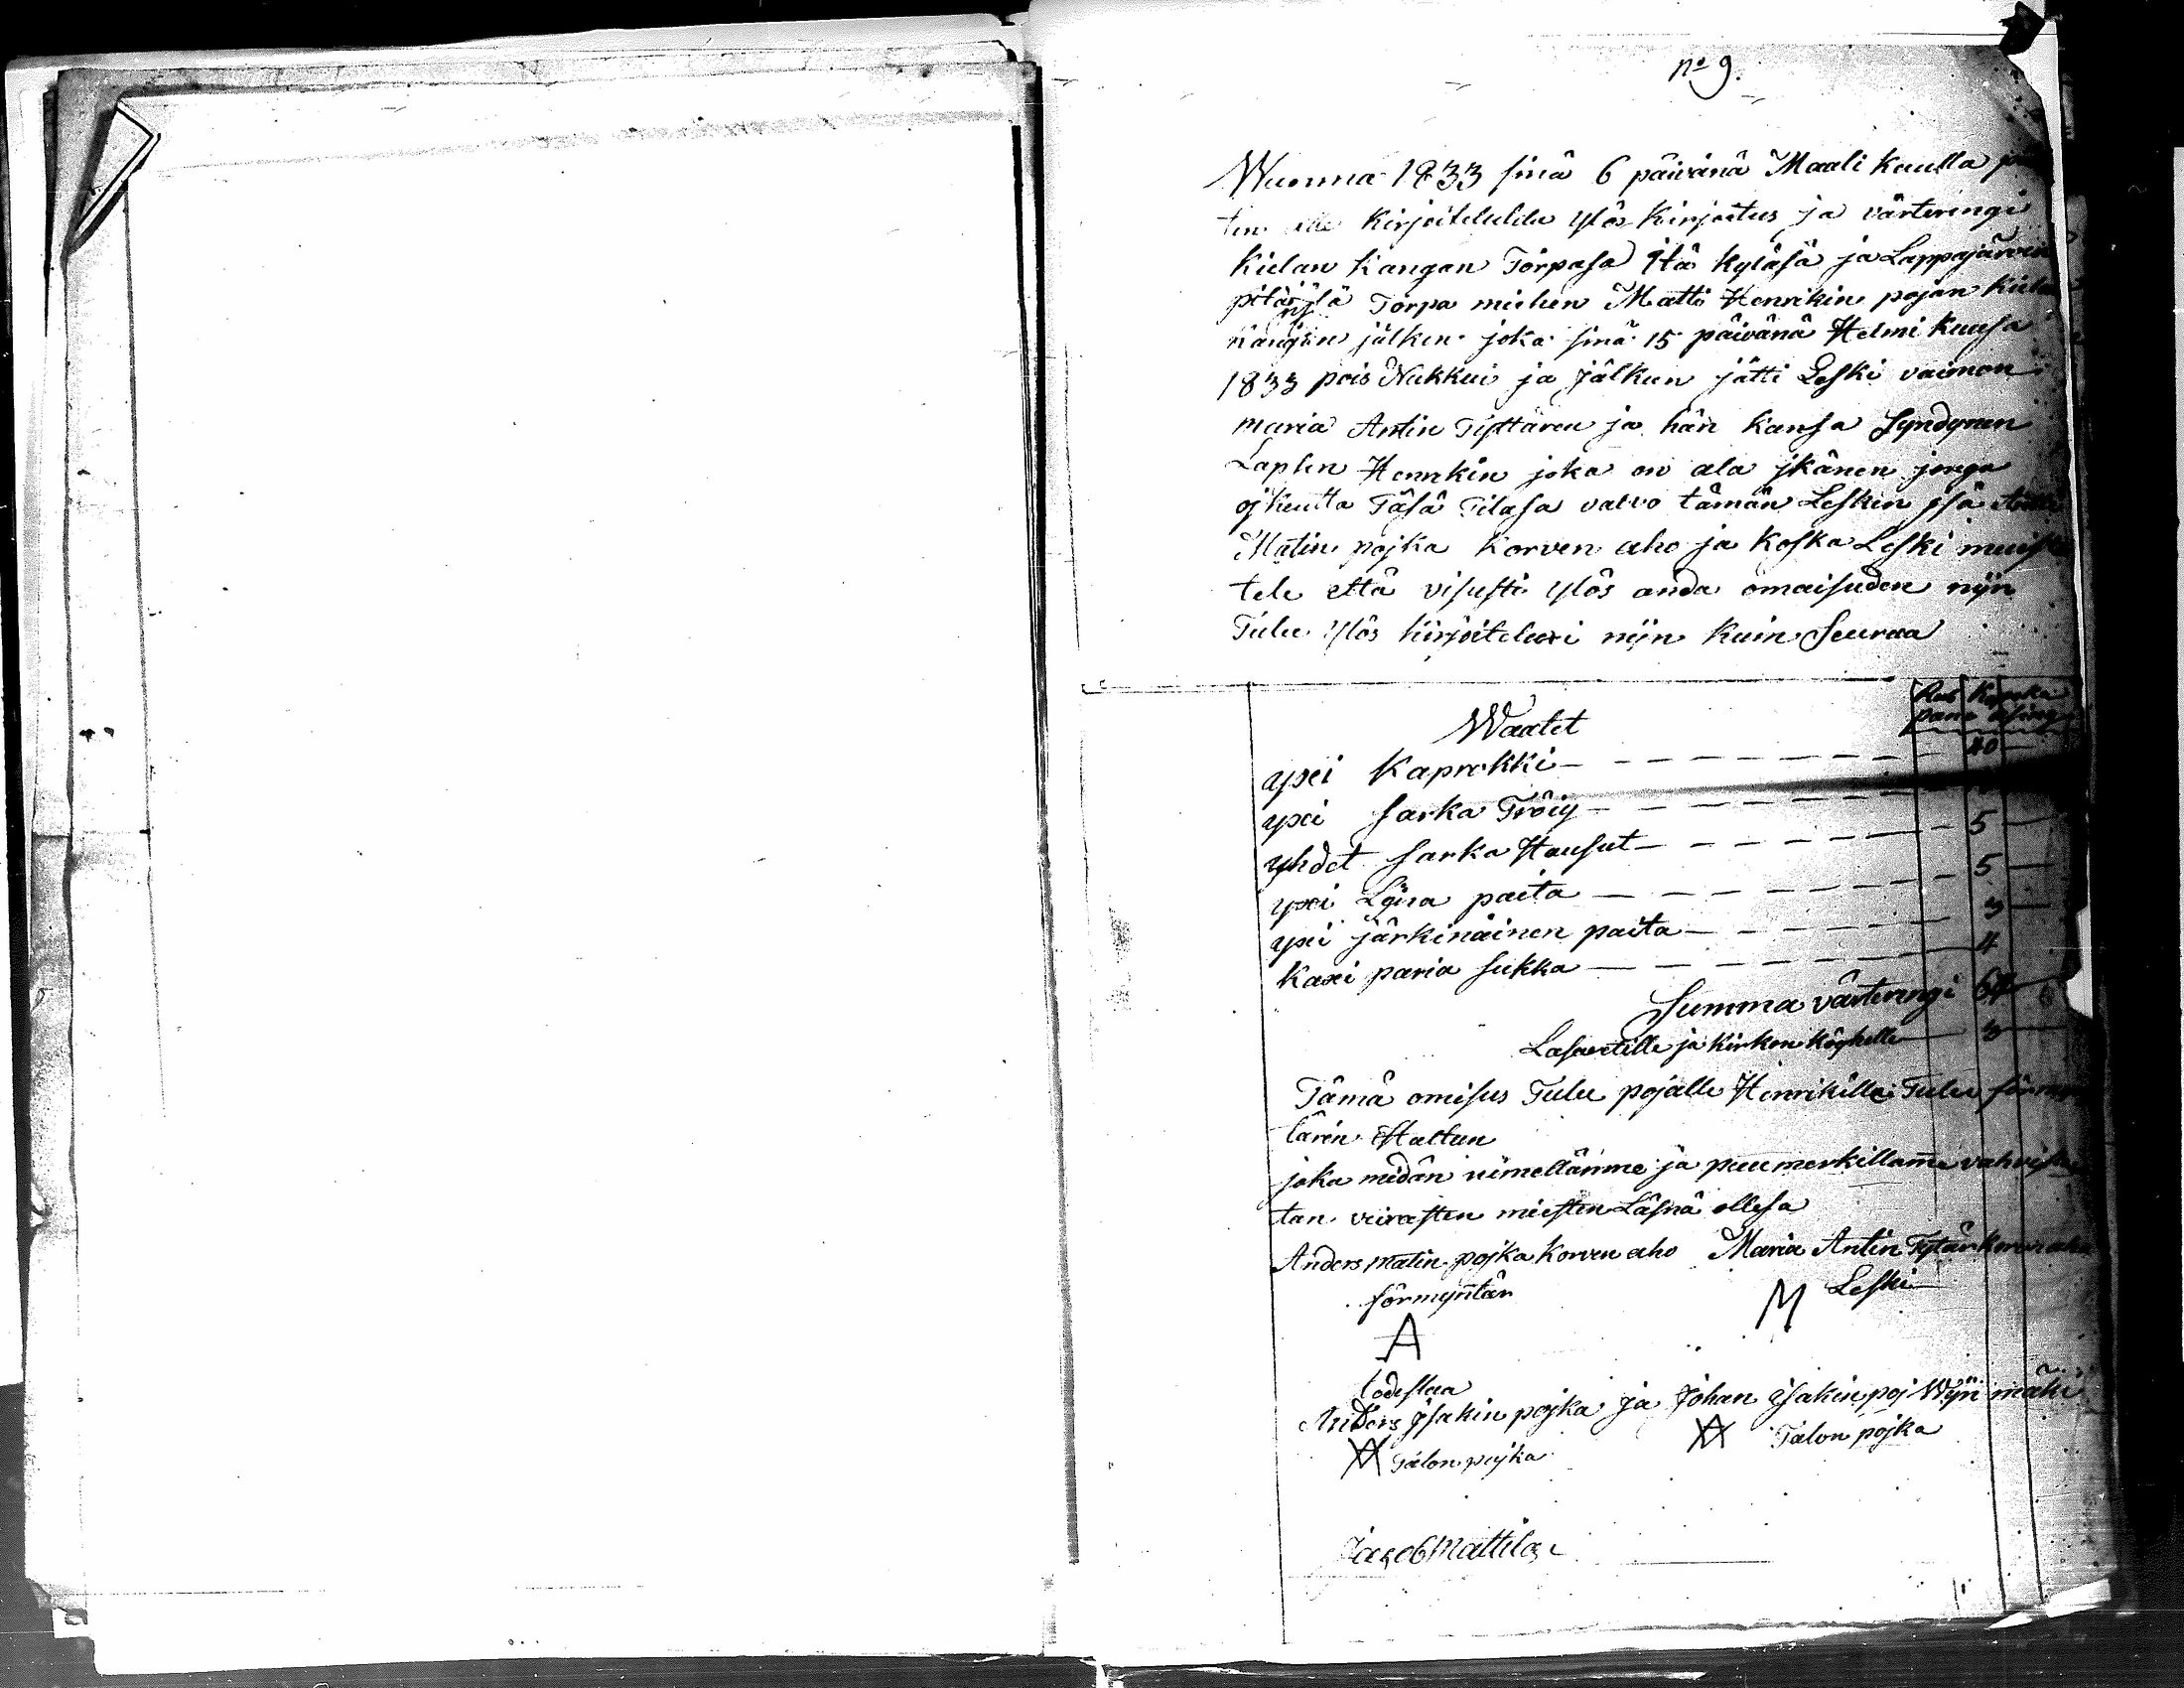 no 9.
Wuonna 1833 sinä 6 päivänä Maali kuulla
ten alle kirjoiteluldu ylös kirjoitus ja värteringi
kielan kangan Torpasa Itä kyläsä ja Lappajärven
pitäjäsä Torpa miehen Matti Henrikin pojan kiela
kangan jälken joka sinä 15 päivänä Helmi kuusa
1833 pois Nukkui ja jälkun jätti Leski vaimon
maria Antin Tyttären ja hän kansa Syndynen
Lapsen Henrikin joka on ala jkänen jonga
oj keutta Täsä Tilasa valvo tämän Leskin jsä Antti
Matin pojka Korven aho ja koska Leski muis
tele että visusti ylös anda omaisuden nijn
Tulee Ylös kirjoiteluxi nijn kuin Seuraa
Rub Kopeka
pano asing
Waatet
yxi Kaprokki 40
yxi sarka Tröiy
yhdet sarka Housut 5
yxi Lijna paita 5
yxi järkinäinen paita 3
kaxi paria sukka 4
Summa värteringi 64
Lasaretille ja kirkon köyhelle 3
Tämä omisus Tulee pojalle Henrikille Tulee förmyn
tärin Haltun
joka meidän nimellämme ja puumerkillame vahvista
tan veirasten miesten Läsnä ollesa
Anders matin pojka Korven aho Maria Antin Tytär korven aho
förmyntär M Leski
A
todistaa
Anders Jsakin pojka ja Johan Jsakin poj Wijn mäki
Talon pojka Talon pojka
Jacob Mattila